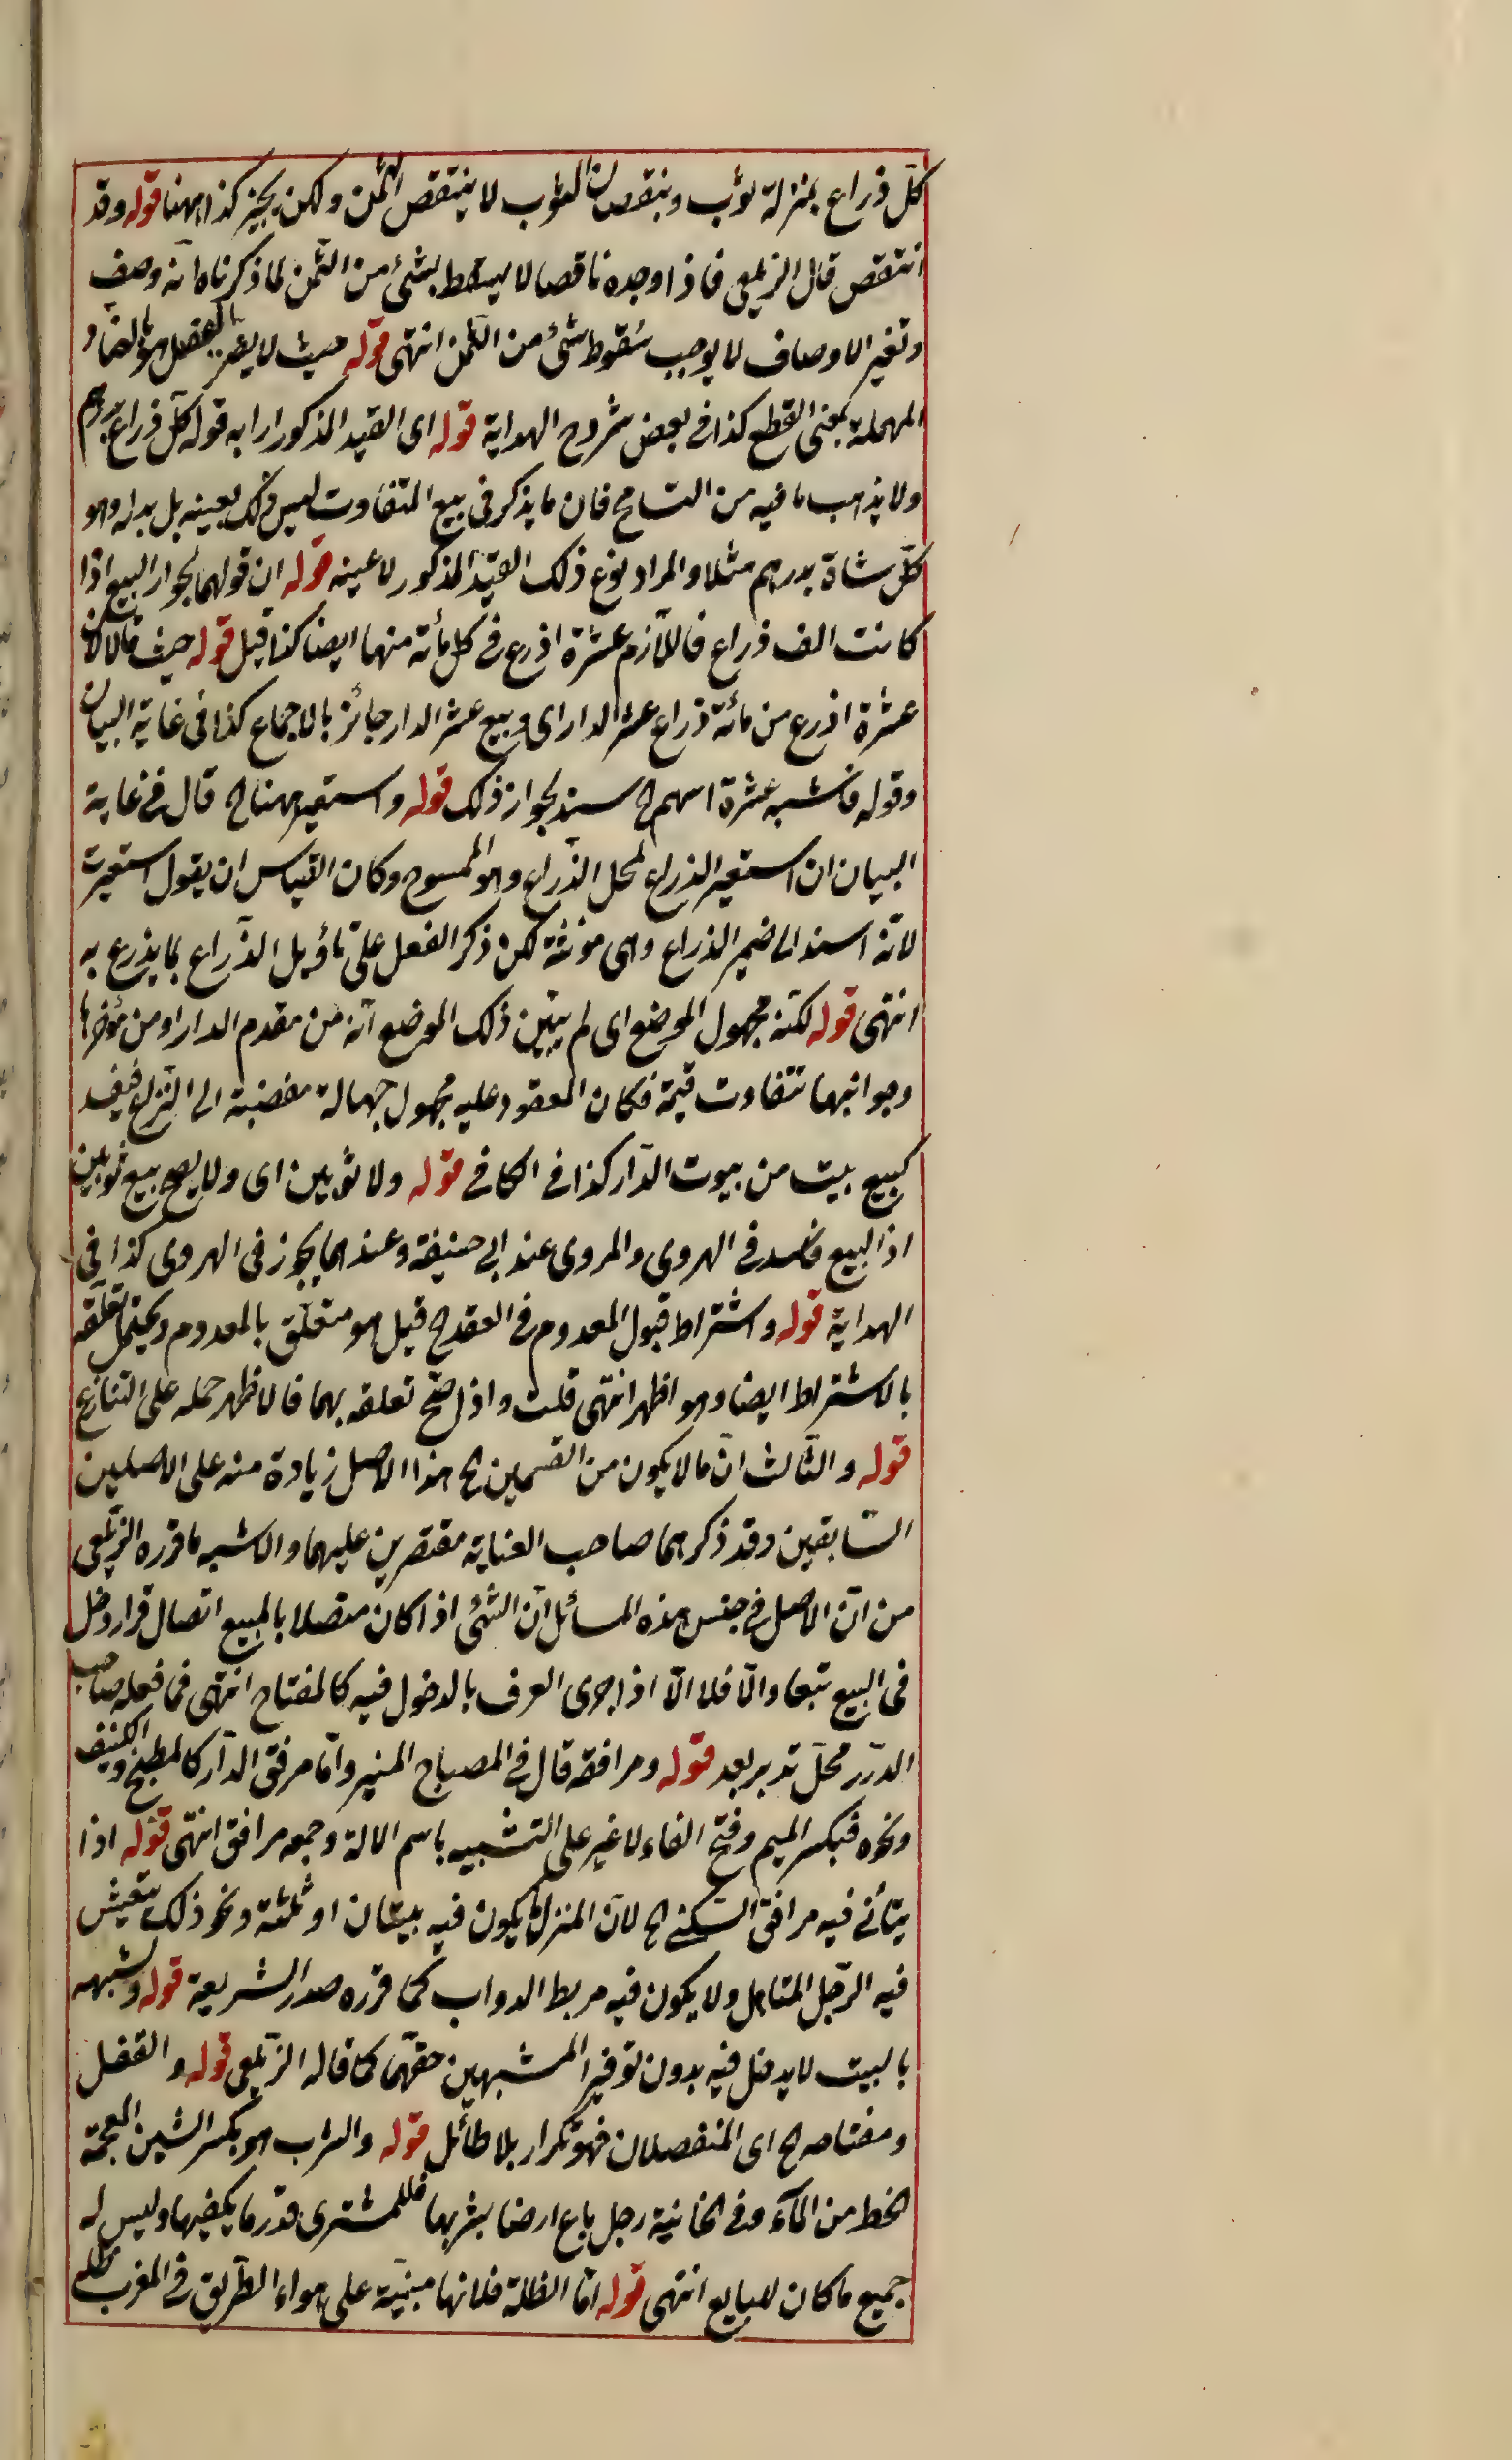 كل ذراع بمنزلة ثوب وبنقصان الثوب لا ينتقص الثمن ولكن يخير كذا ههنا قوله وقد
انتقص قال الزيلعي فاذا وجده ناقصا لا يسقط بشئ من الثمن لما ذكرناه انه وصف
وتغير الاوصاف لا يوجب سقوط شئ من الثمن انتهى قوله حيث لا يضر بالفصل هو بالصاد
المهملة بمعنى القطع كذا في بعض شروح الهداية قوله اى القيد المذكور اراد به قوله كل ذراع بدرهم
ولا يذهب ما فيه من التسامح فان ما يذكر فى بيع المتفاوت ليس ذلك بعينه بل بدله وهو
كل شاة بدرهم مثلا والمراد نوع ذلك القيد المذكور لا عينه قوله ان قولهما بجواز البيع اذا
كانت الف ذراع فاللازم عشرة اذرع في كل مائة منها ايضا كذا قيل قوله حيث قالا لان
عشرة اذرع من مائة ذراع عشر الدار اى وبيع عشر الدار جائز بالاجماع كذا فى غاية البيان
وقوله فاشبه عشرة اسهم الخ سند لجواز ذلك قوله واستعير ههنا الخ قال في غاية
البيان ان استعير الذراع لمحل الذراع وهو الممسوح وكان القياس ان يقول استعيرت
لانه اسند الى ضمير الذراع وهى مؤنثة لكن ذكر الفعل على تأويل الذراع بما يذرع به
انتهى قوله لكنه مجهول الموضع اى لم يبين ذلك الموضع انه من مقدم الدار او من مؤخرها
وجوانبها تتفاوت قيمة فكان المعقود عليه مجهول جهالة مفضية الى النزاع فيفسد
كبيع بيت من بيوت الدار كذا في الكافي قوله ولا ثوبين اى ولا يصح بيع ثوبين
اذ البيع فاسد في الهروى والمروى عند ابى حنيفة وعندهما يجوز فى الهروى كذا فى
الهداية قوله واشتراط قبول المعدوم في العقد الخ قيل هو متعلق بالمعدوم ويحتمل تعلقه
بالاشتراط ايضا وهو اظهر انتهى قلت واذا صح تعلقه بهما فالاظهر حمله على التنازع
قوله والثالث ان ما لا يكون من القسمين الخ هذا الاصل زيادة منه على الاصلين
السابقين وقد ذكرهما صاحب العناية مقتصرين عليهما والاشبه ما قرره الزيلعى
من ان الاصل في جنس هذه المسائل ان الشئ اذا كان متصلا بالمبيع اتصال قرار دخل
فى البيع تبعا والا فلا الا اذا جرى العرف بالدخول فيه كالمفتاح انتهى فما فعله صاحب
الدرر محل تدبر بعد قوله ومرافقه قال في المصباح المنير واما مرفق الدار كالمطبخ والكنيف
ونحوه فبكسر الميم وفتح الفاء لا غير على التشبيه باسم الالة وجمعه مرافق انتهى قوله اذا
يتأتى فيه مرافق السكنى الخ لان المنزل يكون فيه بيتان او ثلثة ونحو ذلك يتعيش
فيه الرجل المتاهل ولا يكون فيه مربط الدواب كما قرره صدر الشريعة قوله ولشبهه
بالبيت لا يدخل فيه بدون توفير المشبهين حقهما كما قاله الزيلعى قوله والقفل
ومفتاحه الخ اى المنفصلان فهو تكرار بلا طائل قوله والشرب هو بكسر الشين المعجمة
الحظ من الماء وفى الخانية رجل باع ارضا بشربها فللمشترى قدر ما يكفيها وليس له
جميع ما كان للبايع انتهى قوله اما الظلة فلانها مبنية على هواء الطريق في المغرب ظلة